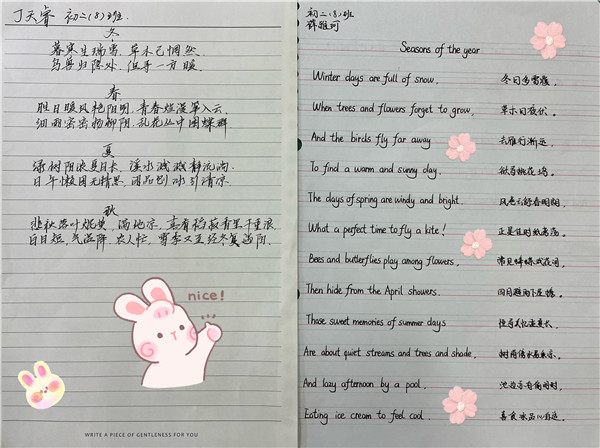 丁天睿 初二(8)班.
冬
暮寒生瑞雪,草木已惘然.
鸟兽归隐处,但寻一方暖.
春
胜日暖风艳阳明,青春烂漫笔入云.
细雨密密杨柳阴,乱花丛中闹蝶群
夏
绿树阴浓夏日长,溪水溅溅静流淌.
日午懒困无精思,冰引清凉.
秋
落叶,满地凉,千重浪.
白日短,气温降,农人忙,雪季又至经冬复
nice!
WRITE A PIECE OF GENTLENESS FOR YOU
初二(8)班
Seasons of the year
Winter days are full of snow,
冬日多雪霰,
When trees and flowers forget to grow,
草木日夜伏.
And the birds fly far away
去雁行渐远,
To find a warm and sunny day.
欲寻桃花坞.
The days of spring are windy and bright.
风色六舒春明朗
What a perfect time to fly a kite!
正是佳时纸鸢荡.
Bees and butterflies play among flowers,
常见蜂蝶戏花间,
Then hide from the April showers.
四月避雨下屋檐.
Those sweet memories of summer days
恬静美忆在夏长,
Are about quiet streams and trees and shade,
树荫傍水
And lazy afternoon by a pool,
池边
Eating ice cream to feel cool.
喜食冰品以自适.